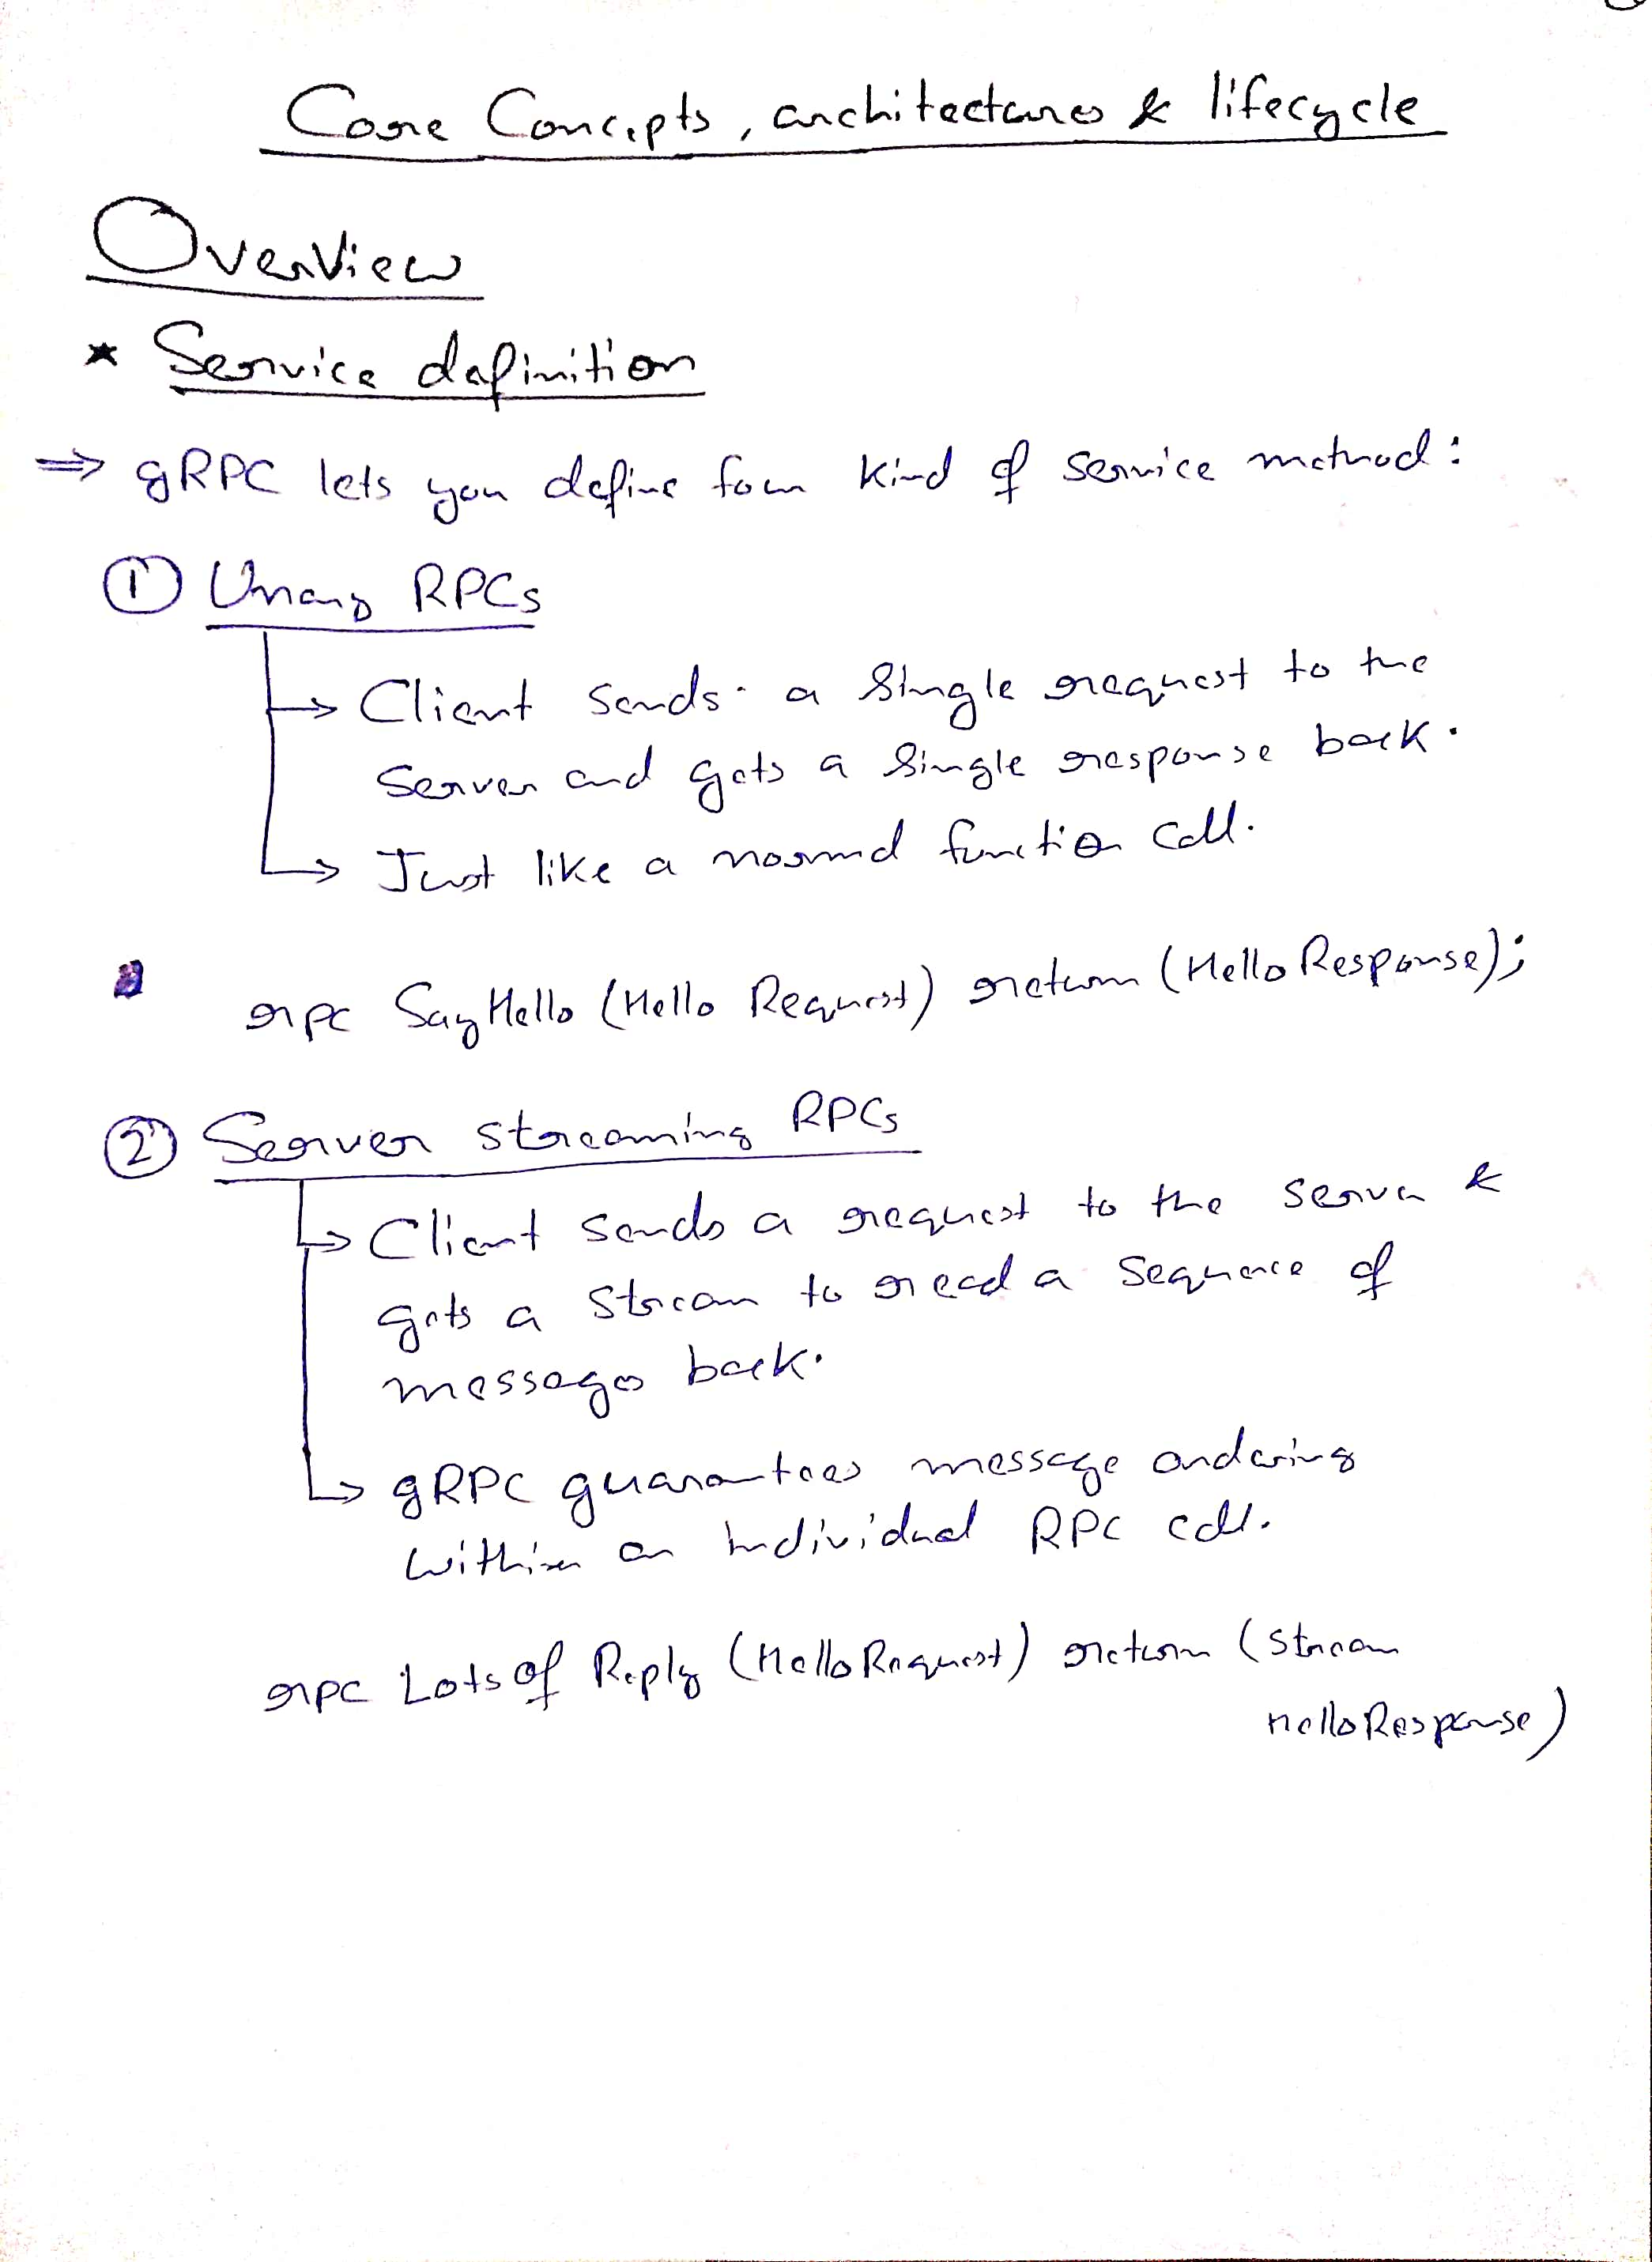 Core Concepts, architectures & lifecycle
Overview
* Service definition
⇒ gRPC lets you define four kind of service method:
① Unary RPCs
↳ Client sends a single request to the
server and gets a single response back.
↳ Just like a normal function call.
rpc SayHello (Hello Request) return (Hello Response);
② Server streaming RPCs
↳ Client sends a request to the server &
gets a stream to read a sequence of
messages back.
↳ gRPC guarantees message ordering
within an individual RPC call.
rpc LotsOf Reply (HelloRequest) return (stream
HelloResponse)